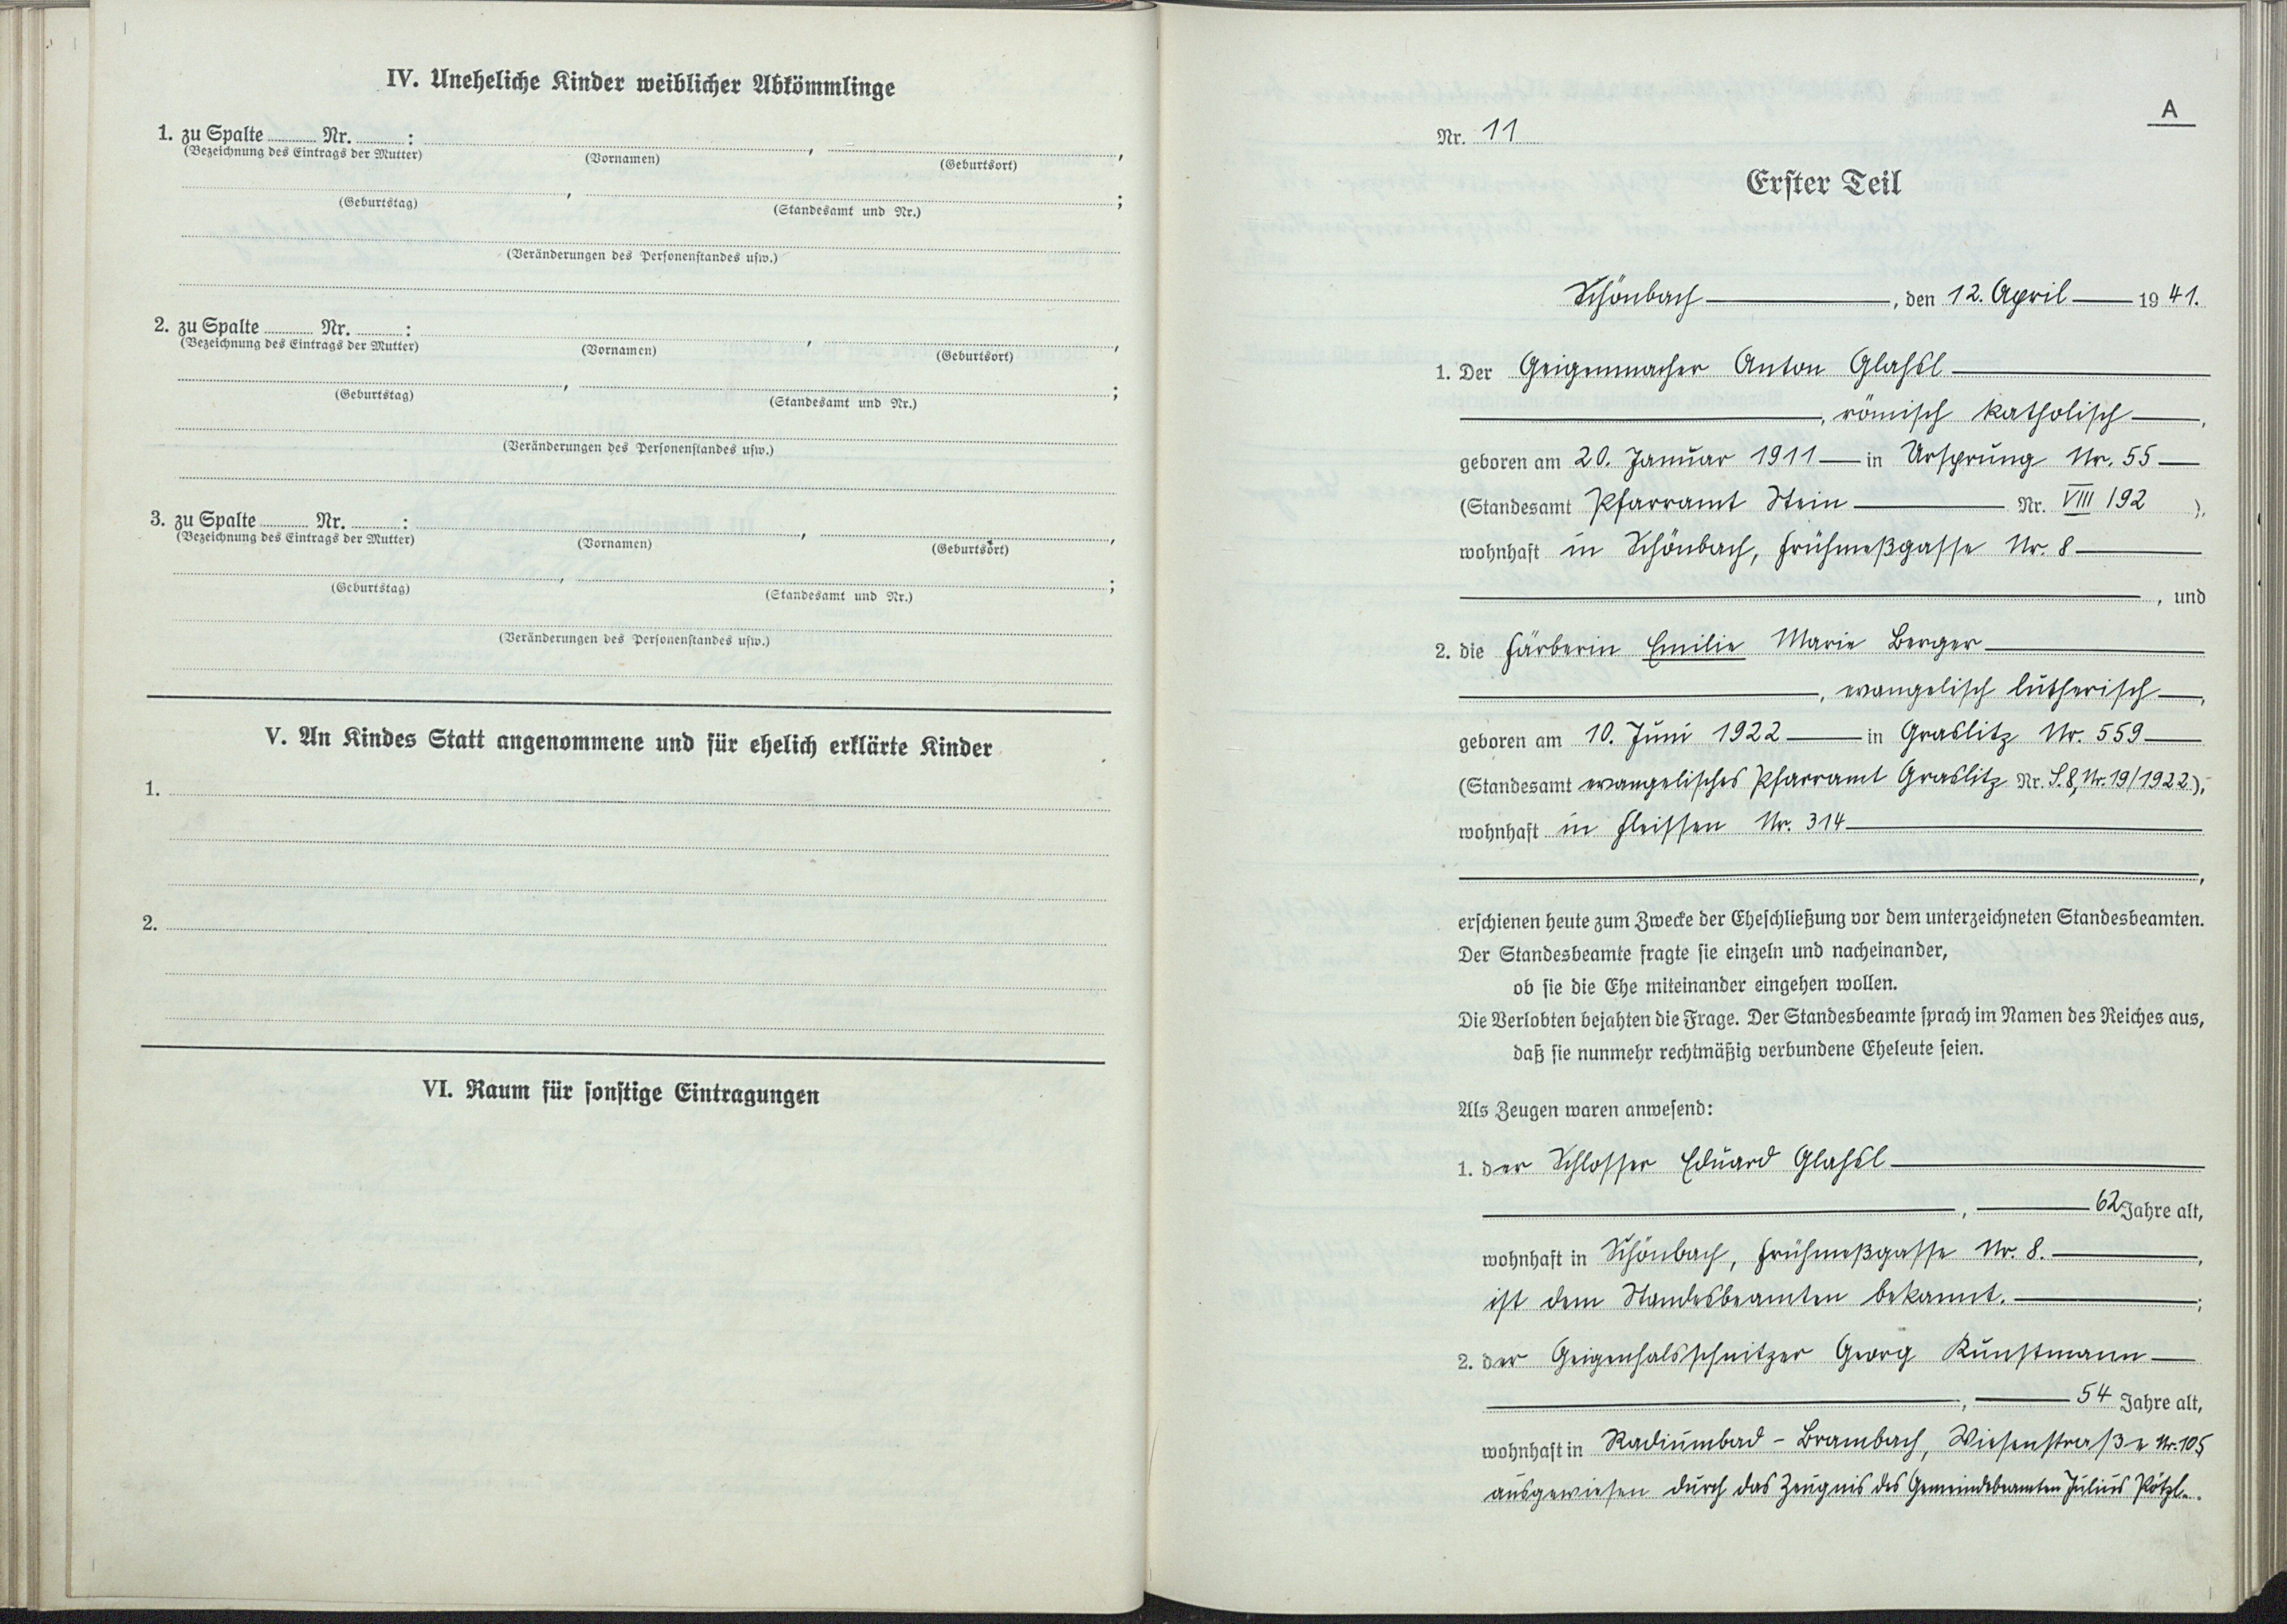 IV. Uneheliche Kinder weiblicher Abkömmlinge
1. zu Spalte ........ Nr. ........ : ........ , ........ ,
(Bezeichnung des Eintrags der Mutter) (Vornamen) (Geburtsort)
........ , ........ ;
(Geburtstag) (Standesamt und Nr.)
(Veränderungen des Personenstandes usw.)
2. zu Spalte ........ Nr. ........ : ........ , ........ ,
(Bezeichnung des Eintrags der Mutter) (Vornamen) (Geburtsort)
........ , ........ ;
(Geburtstag) (Standesamt und Nr.)
(Veränderungen des Personenstandes usw.)
3. zu Spalte ........ Nr. ........ : ........ , ........ ,
(Bezeichnung des Eintrags der Mutter) (Vornamen) (Geburtsort)
........ , ........ ;
(Geburtstag) (Standesamt und Nr.)
(Veränderungen des Personenstandes usw.)
V. An Kindes Statt angenommene und für ehelich erklärte Kinder
1.
2.
VI. Raum für sonstige Eintragungen
A
Nr. 11
Erster Teil
Schönbach, den 12. April 1941.
1. Der Geigenmacher Anton Glahsl
, römisch katholisch,
geboren am 20. Januar 1911 in Ursprung Nr. 55
(Standesamt Pfarramt Stein Nr. VIII 192 ),
wohnhaft in Schönbach, Frühmeßgasse Nr. 8
, und
2. die Färberin Emilie Marie Berger
, evangelisch lutherisch,
geboren am 10. Juni 1922 in Graslitz Nr. 559
(Standesamt evangelisches Pfarramt Graslitz Nr. S. 8, Nr. 19/1922),
wohnhaft in Fleissen Nr. 314
,
erschienen heute zum Zwecke der Eheschließung vor dem unterzeichneten Standesbeamten.
Der Standesbeamte fragte sie einzeln und nacheinander,
ob sie die Ehe miteinander eingehen wollen.
Die Verlobten bejahten die Frage. Der Standesbeamte sprach im Namen des Reiches aus,
daß sie nunmehr rechtmäßig verbundene Eheleute seien.
Als Zeugen waren anwesend:
1. der Schlosser Eduard Glahsl
, 62 Jahre alt,
wohnhaft in Schönbach, Frühmeßgasse Nr. 8. ,
ist dem Standesbeamten bekannt. ;
2. der Geigenhalsschnitzer Georg Kunstmann
, 54 Jahre alt,
wohnhaft in Radiumbad - Brambach, Wiesenstraße Nr. 105
ausgewiesen durch das Zeugnis des Gemeindebeamten Julius Pötzl.